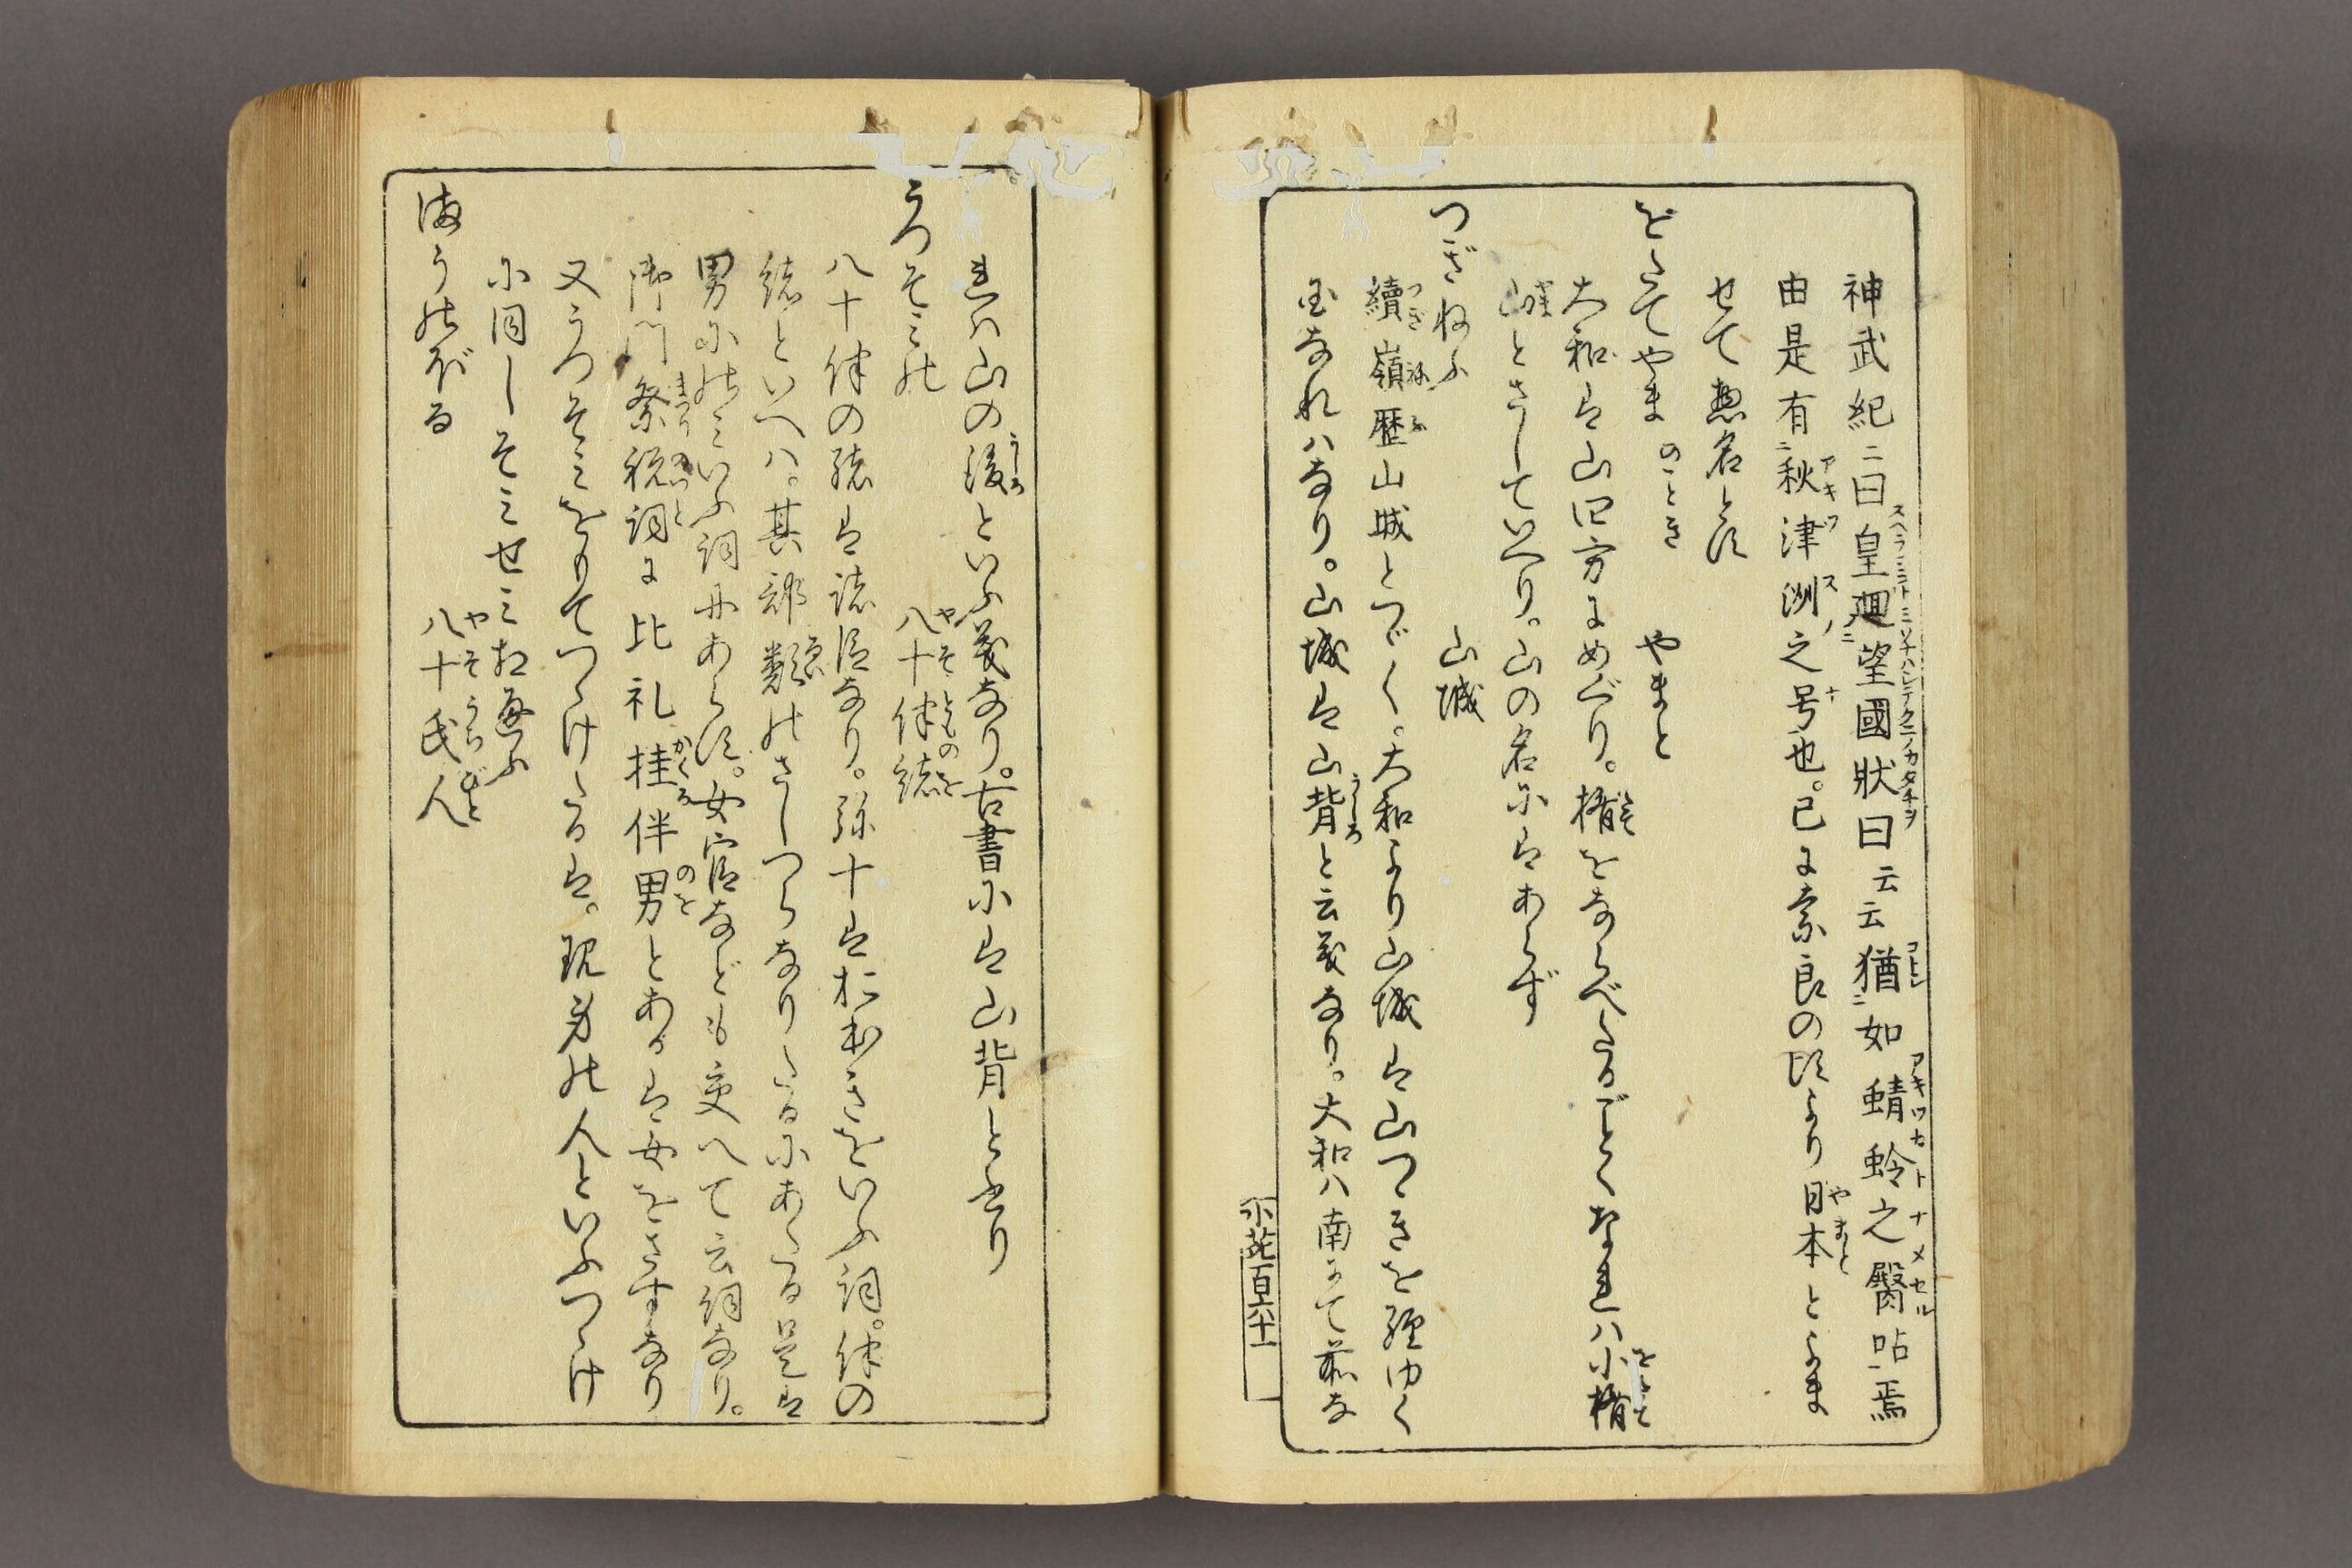 神武紀ニ曰皇廻望國狀曰云云猶如蜻蛉之臀呫焉
由是有秋津洲之号也。已に奈良の比より日本とよま
せて惣名とす
をたてやま のことき やまと
大和は山四方にめぐり。楯をならべたるごとくなれハ小楯
とさしていへり。山の名にはあらず
つぎねふ 山城
續嶺歴山城とつづく。大和より山城は山つゝきを經ゆく
國なれハなり。山城は山背と云義なり。大和ハ南にて前な
れハ山の後といふ義なり。古書には山背とかけり
うつそみの 八十伴緒
八十伴の緒は諸臣なり。弥十はおほきをいふ詞。伴の
緒といへハ。其部類のさしつらなりたるにあたる是は
男にのミいふ詞にあらす。女官なども交へて云詞なり。
御門祭祝詞に比礼挂伴男とあるは女をさすなり
又うつそミをうけてつゝけたるは。現身の人といふつゝけ
に同しそミせミ相通ふ
まうのぼる 八十氏人